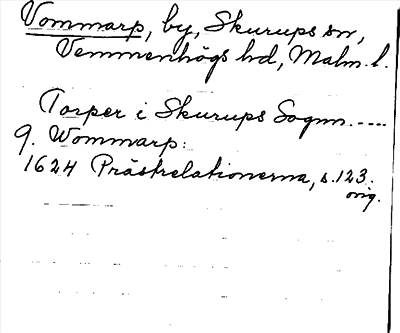 Vommarp, by, Skurups sn,
Vemmenhögs hd, Malm. l.
Torper i Skurups Sogn. ----
9. Wommarp:
1624 Prästrelationerna, s. 123.
orig.